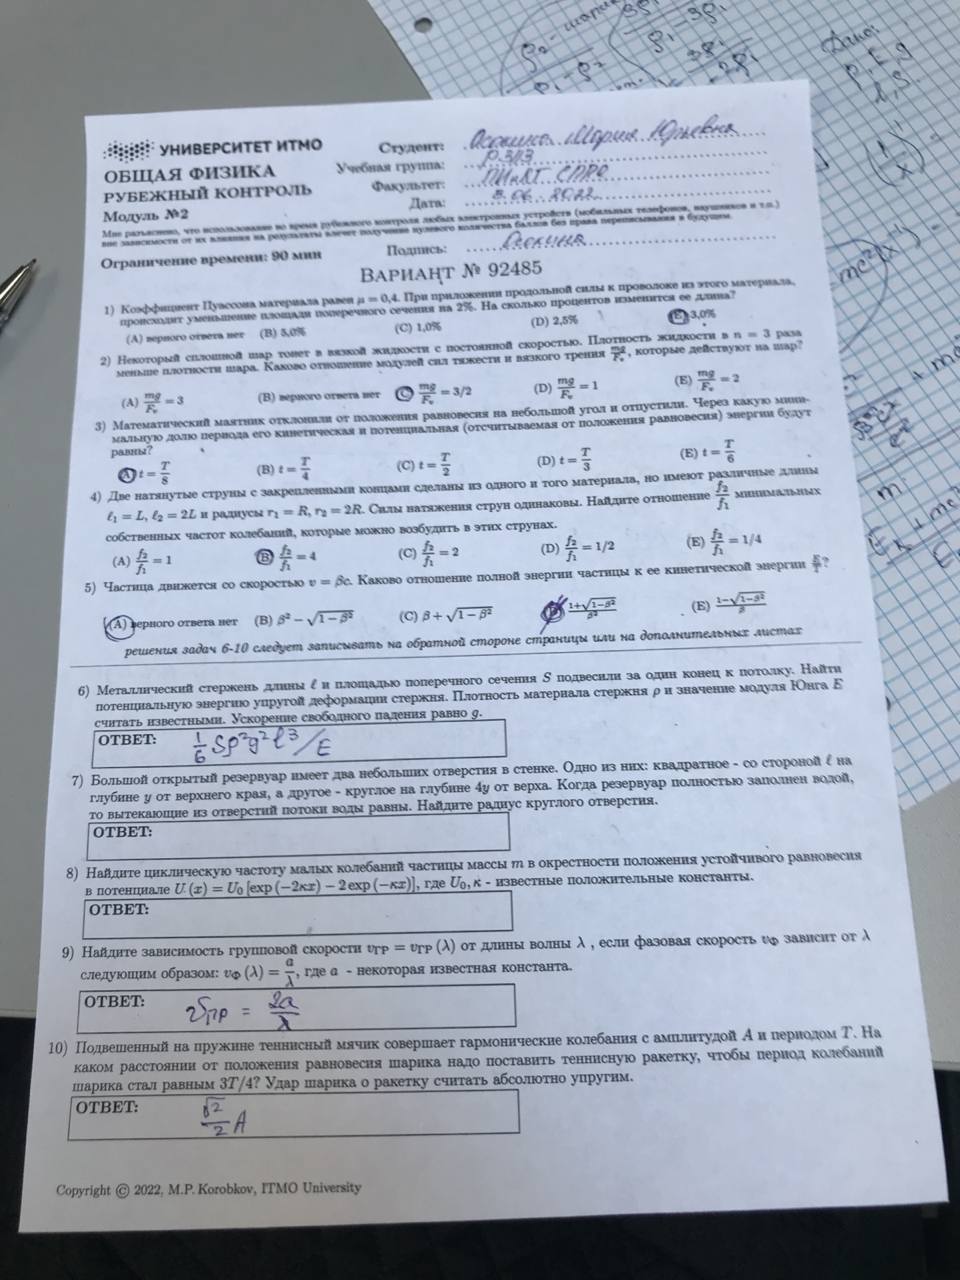 УНИВЕРСИТЕТ ИТМО
ОБЩАЯ ФИЗИКА
РУБЕЖНЫЙ КОНТРОЛЬ
Модуль №2
Студент: Мария Юрьевна
Учебная группа:
Факультет:
Дата: .06.2022
Мне разъяснено, что использование во время рубежного контроля любых электронных устройств (мобильных телефонов, наушников и т.п.)
вне зависимости от их влияния на результаты влечет получение нулевого количества баллов без права переписывания в будущем.
Ограничение времени: 90 мин
Подпись:
ВАРИАНТ № 92485
1) Коэффициент Пуассона материала равен μ = 0,4. При приложении продольной силы к проволоке из этого материала,
происходит уменьшение площади поперечного сечения на 2%. На сколько процентов изменится ее длина?
(A) верного ответа нет (B) 5,0% (C) 1,0% (D) 2,5% (E) 3,0%
2) Некоторый сплошной шар тонет в вязкой жидкости с постоянной скоростью. Плотность жидкости в n = 3 раза
меньше плотности шара. Каково отношение модулей сил тяжести и вязкого трения mg/Fв, которые действуют на шар?
(A) mg/Fв = 3 (B) верного ответа нет (C) mg/Fв = 3/2 (D) mg/Fв = 1 (E) mg/Fв = 2
3) Математический маятник отклонили от положения равновесия на небольшой угол и отпустили. Через какую мини-
мальную долю периода его кинетическая и потенциальная (отсчитываемая от положения равновесия) энергии будут
равны?
(A) t = T/8 (B) t = T/4 (C) t = T/2 (D) t = T/3 (E) t = T/6
4) Две натянутые струны с закрепленными концами сделаны из одного и того материала, но имеют различные длины
ℓ₁ = L, ℓ₂ = 2L и радиусы r₁ = R, r₂ = 2R. Силы натяжения струн одинаковы. Найдите отношение f₂/f₁ минимальных
собственных частот колебаний, которые можно возбудить в этих струнах.
(A) f₂/f₁ = 1 (B) f₂/f₁ = 4 (C) f₂/f₁ = 2 (D) f₂/f₁ = 1/2 (E) f₂/f₁ = 1/4
5) Частица движется со скоростью v = βc. Каково отношение полной энергии частицы к ее кинетической энергии E/T?
(A) верного ответа нет (B) β² − √(1−β²) (C) β + √(1−β²) (D) (1+√(1−β²))/β² (E) (1−√(1−β²))/β
решения задач 6-10 следует записывать на обратной стороне страницы или на дополнительных листах
6) Металлический стержень длины ℓ и площадью поперечного сечения S подвесили за один конец к потолку. Найти
потенциальную энергию упругой деформации стержня. Плотность материала стержня ρ и значение модуля Юнга E
считать известными. Ускорение свободного падения равно g.
ОТВЕТ: 1/6 Sρ²g²l³/E
7) Большой открытый резервуар имеет два небольших отверстия в стенке. Одно из них: квадратное - со стороной ℓ на
глубине y от верхнего края, а другое - круглое на глубине 4y от верха. Когда резервуар полностью заполнен водой,
то вытекающие из отверстий потоки воды равны. Найдите радиус круглого отверстия.
ОТВЕТ:
8) Найдите циклическую частоту малых колебаний частицы массы m в окрестности положения устойчивого равновесия
в потенциале U(x) = U₀ [exp(−2κx) − 2exp(−κx)], где U₀, κ - известные положительные константы.
ОТВЕТ:
9) Найдите зависимость групповой скорости vГР = vГР(λ) от длины волны λ , если фазовая скорость vФ зависит от λ
следующим образом: vФ(λ) = a/λ, где a - некоторая известная константа.
ОТВЕТ: = 2a/λ
10) Подвешенный на пружине теннисный мячик совершает гармонические колебания с амплитудой A и периодом T. На
каком расстоянии от положения равновесия шарика надо поставить теннисную ракетку, чтобы период колебаний
шарика стал равным 3T/4? Удар шарика о ракетку считать абсолютно упругим.
ОТВЕТ: √2/2 A
Copyright © 2022, M.P. Korobkov, ITMO University
Дано: